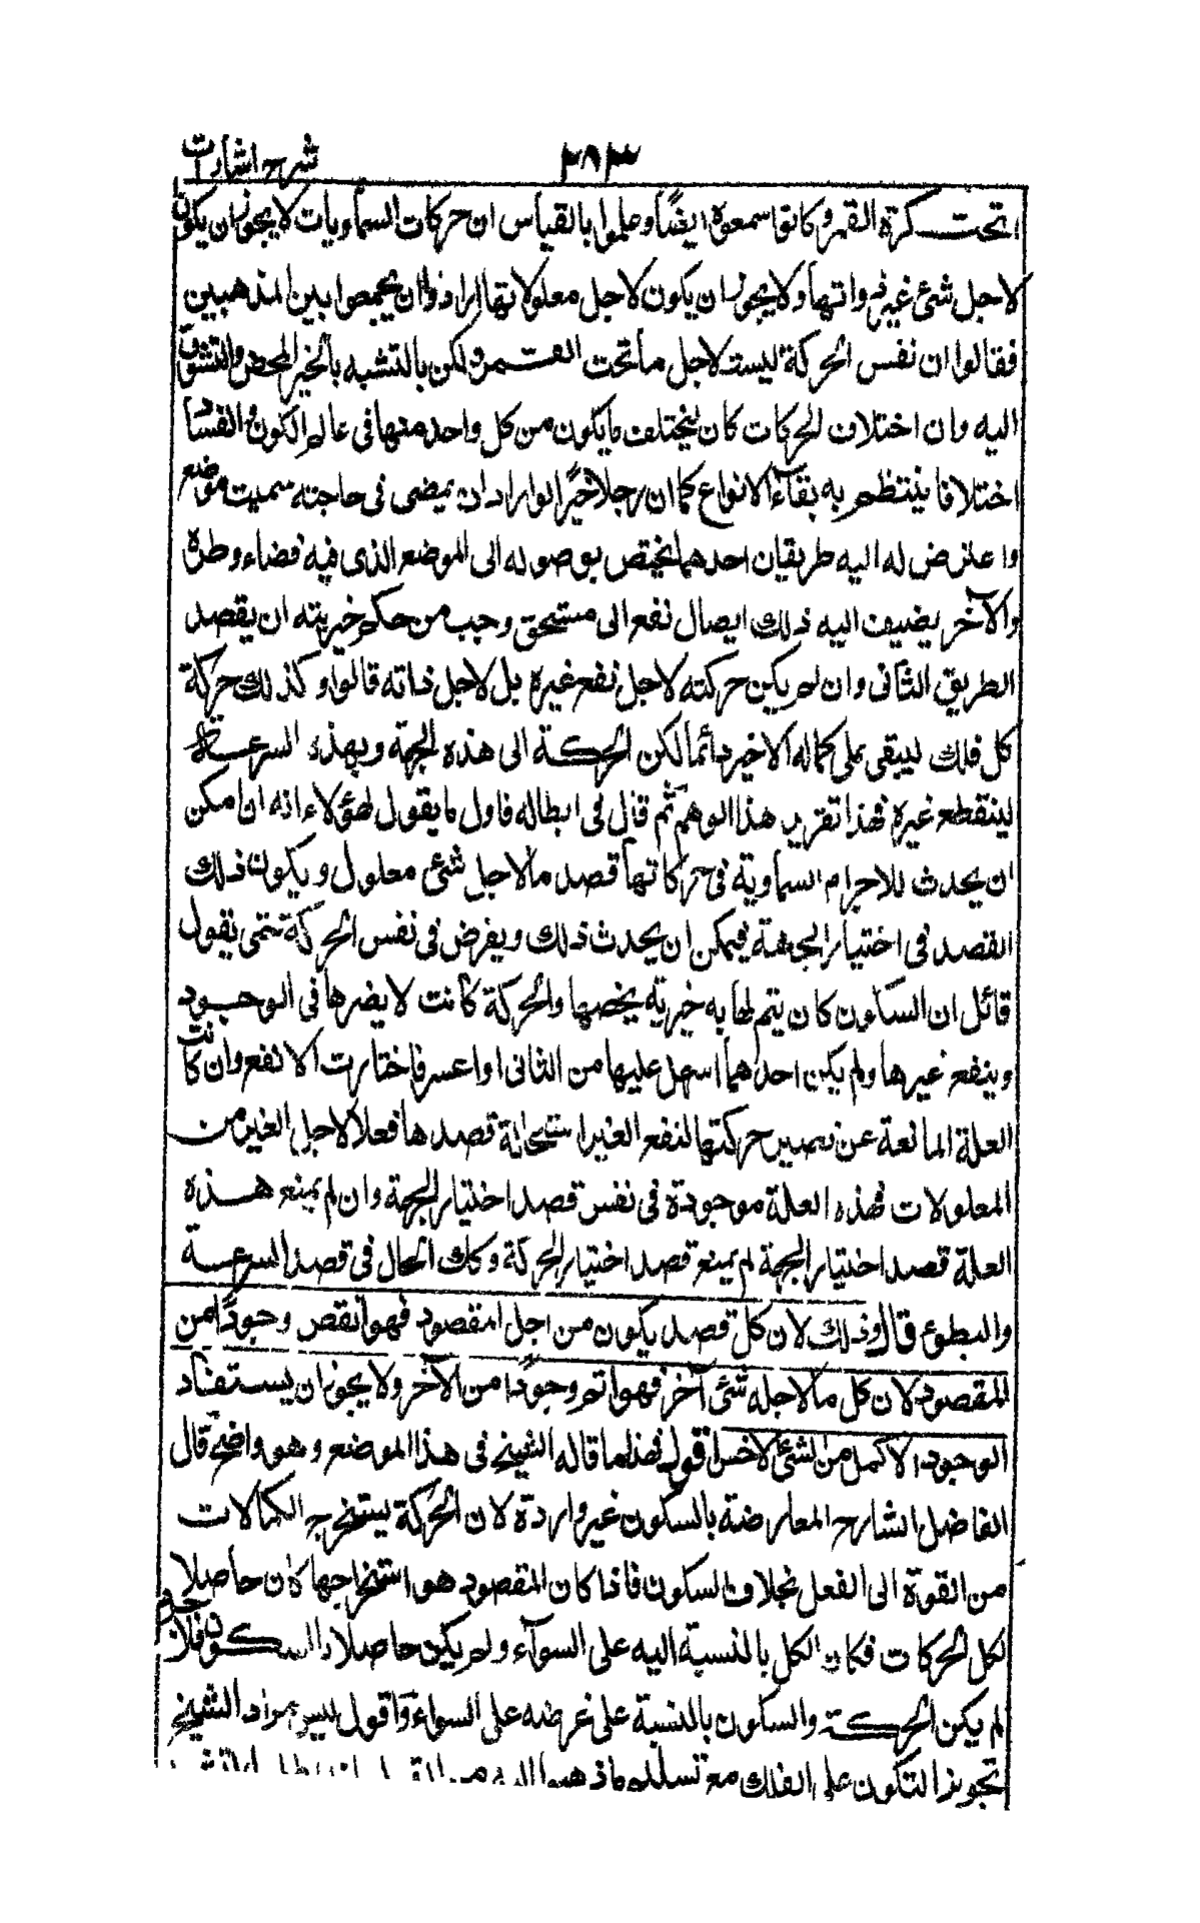 شرح اشارات
٣٨٣
تحت كرة القمر وكانوا سمعوه ايضًا وعلموا بالقياس ان حركات السماويات لا يجوز ان يكون
لاجل شئ غير ذواتها ولا يجوز ان يكون لاجل معلولاتها ارادوا ان يجمعوا بين المذهبين
فقالوا ان نفس الحركة ليست لاجل ما تحت القمر ولكن بالتشبه بالخير المحض والتشوق
اليه وان اختلاف الحركات كان ليختلف ما يكون من كل واحد منها فى عالم الكون والفساد
اختلافا ينتظم به بقاء الانواع كما ان رجلا خيرًا لو اراد ان يمضى فى حاجته سميت موضع
واعترض له اليه طريقان احدهما يختص بوصوله الى الموضع الذى فيه قضاء وطره
والآخر يضيف اليه ذلك ايصال نفع الى مستحق وجب من حكم خيريته ان يقصد
الطريق الثانى وان لم يكن حركته لاجل نفع غيره بل لاجل ذاته قالوا وكذلك حركة
كل فلك ليبقى على كماله الاخير دائما لكن الحركة الى هذه الجهة وبهذه السرعة
لينتفع غيره فهذا تقرير هذا الوهم ثم قال فى ابطاله فاول ما يقول لهؤلاء انه ان امكن
ان يحدث للاجرام السماوية فى حركاتها قصد ما لاجل شئ معلول ويكون ذلك
القصد فى اختيار الجهة فيمكن ان يحدث ذلك ويفرض فى نفس الحركة حتى يقول
قائل ان السكون كان يتم لها به خيرية يخصها والحركة كانت لا يضرها فى الوجود
وينفع غيرها ولم يكن احدهما اسهل عليها من الثانى او اعسر فاختارت الانفع وان كانت
العلة المانعة عن تصيير حركتها لنفع الغير استحالة قصدها فعلا لاجل الغير من
المعلولات فهذه العلة موجودة فى نفس قصد اختيار الجهة وان لم يمنع هذه
العلة قصد اختيار الجهة لم يمنع قصد اختيار الحركة وكذلك الحال فى قصد السرعة
والبطوء قال وذلك لان كل قصد يكون من اجل المقصود فهو انقص وجودًا من
المقصود لان كل ما لاجله شئ آخر فهو اتم وجودًا من الآخر ولا يجوز ان يستفاد
الوجود الاكمل من الشئ الاخس اقول فهذا ما قاله الشيخ فى هذا الموضع وهو واضح قال
الفاضل الشارح المعارضة بالسكون غير واردة لان الحركة يستخرج الكمالات
من القوة الى الفعل بخلاف السكون فاذا كان المقصود هو استخراجها كان حاصلا
لكل الحركات فكان الكل بالنسبة اليه على السواء ولم يكن حاصلا بالسكون فلا جرم
لم يكن الحركة والسكون بالنسبة على غرضه على السواء واقول ليس مراد الشيخ
تجويز السكون على الفلك مع تسليم ما ذهبوا اليه